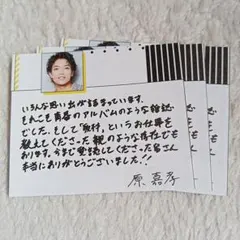 いろんな思い出が詰まっています。
それこそ青春のアルバムのような雑誌
でした。そして「取材」というお仕事を
教えてくださった親のような存在でも
あります。今まで愛読してくださった皆さん
本当にありがとうございました!!
原 嘉孝